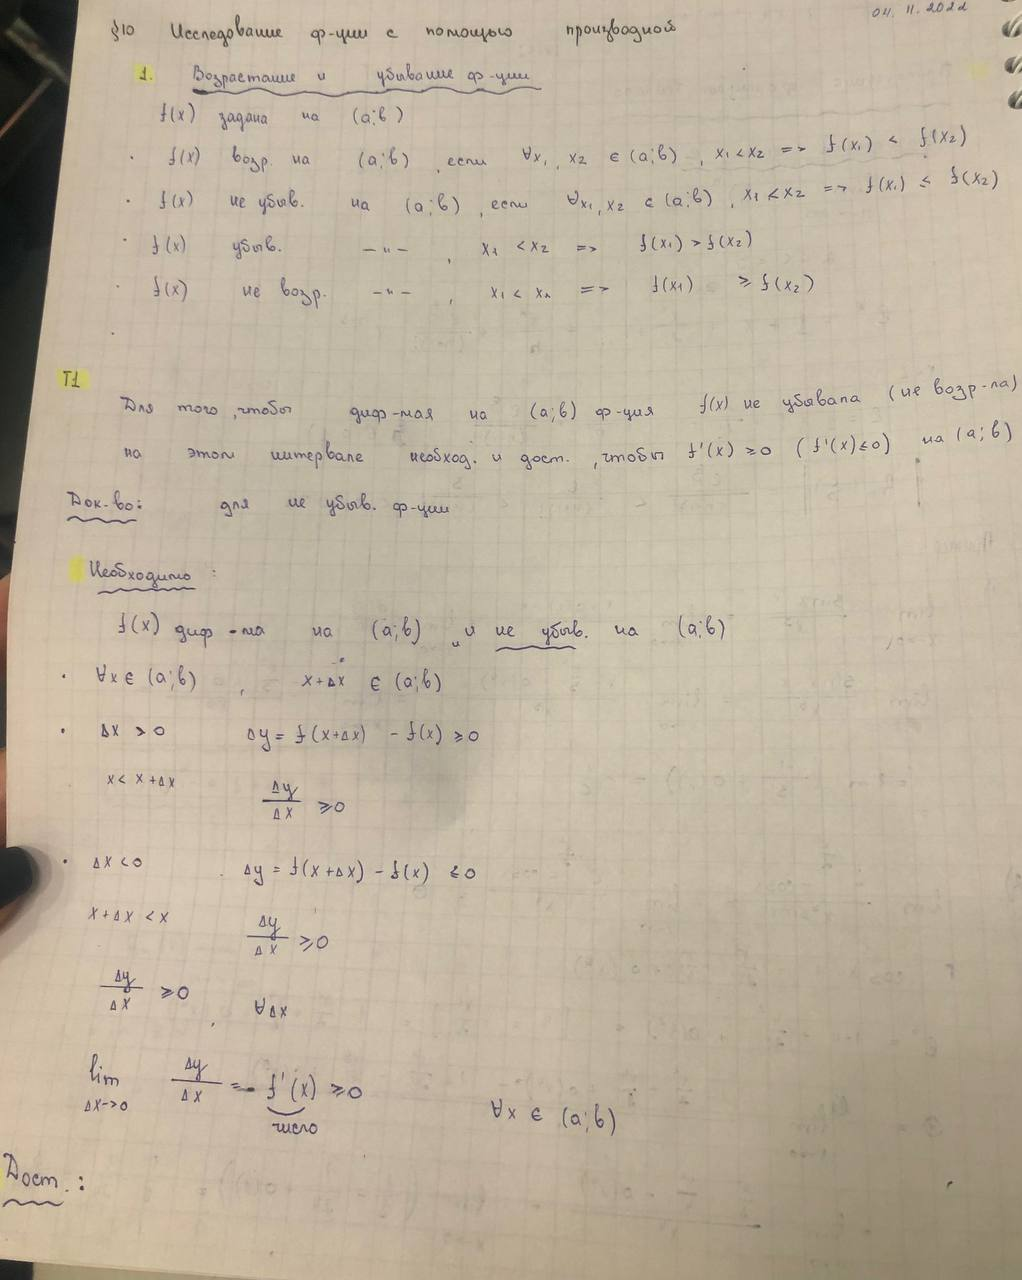 04.11.2022
§10 Исследование ф-ции с помощью производной
1. Возрастание и убывание ф-ции
f(x) задана на (a;b)
· f(x) возр. на (a;b), если ∀x₁, x₂ ∈ (a;b), x₁ < x₂ => f(x₁) < f(x₂)
· f(x) не убыв. на (a;b), если ∀x₁, x₂ ∈ (a;b), x₁ < x₂ => f(x₁) ≤ f(x₂)
· f(x) убыв. –"– , x₁ < x₂ => f(x₁) > f(x₂)
· f(x) не возр. –"– , x₁ < x₂ => f(x₁) ≥ f(x₂)
T1
Для того, чтобы диф-мая на (a;b) ф-ция f(x) не убывала (не возр-ла)
на этом интервале необход. и дост., чтобы f'(x) ≥ 0 (f'(x) ≤ 0) на (a;b)
Док-во: для не убыв. ф-ции
Необходимо:
f(x) диф-ма на (a;b) и не убыв. на (a;b)
· ∀x ∈ (a;b), x+Δx ∈ (a;b)
· Δx > 0 Δy = f(x+Δx) - f(x) ≥ 0
x < x+Δx Δy/Δx ≥ 0
· Δx < 0 Δy = f(x+Δx) - f(x) ≤ 0
x+Δx < x Δy/Δx ≥ 0
Δy/Δx ≥ 0, ∀Δx
lim Δx->0 Δy/Δx = f'(x) ≥ 0 ∀x ∈ (a;b)
число
Дост.: